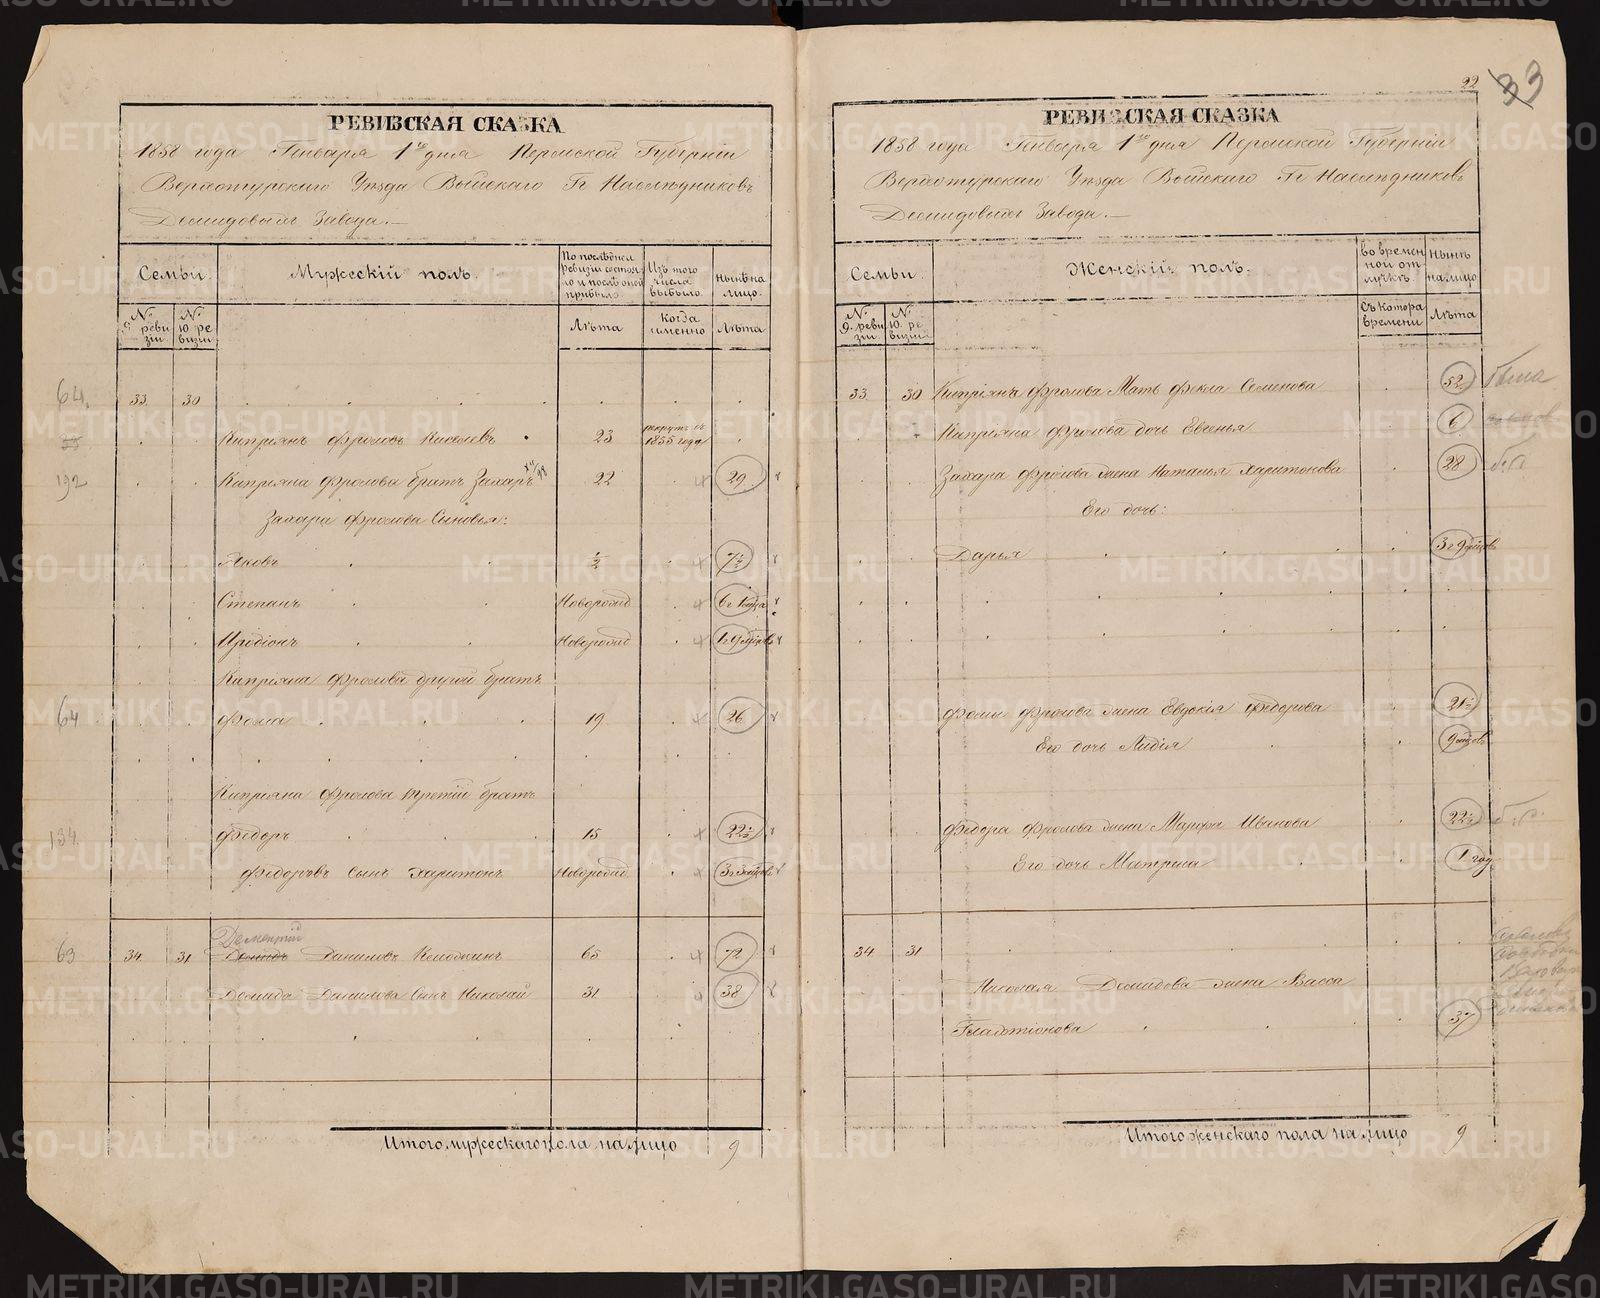 22
33
РЕВИЗСКАЯ СКАЗКА
1858 года Генваря 1го дня Пермской Губернiи
Верхотурскаго Уѣзда Выйскаго Гг Наслѣдниковъ
Демидовыхъ Завода.—
Семьи.
Мужескiй полъ.
По послѣдней
ревизiи состоя-
ло и послѣ оной
прибыло
Изъ того
числа
выбыло
Нынѣ на
лицо.
№
9. реви
зiи
№
10 ре
визiи
Лѣта
когда
именно
Лѣта
64.
33 30
Кипрiянъ Фроловъ Киселевъ 23 рекрутъ въ 1855 года
192
Кипрiяна Фролова братъ Захаръ 22 29
Захара Фролова Сыновья:
Яковъ ½ 7½
Степанъ Новорожд 6г 1мца
Иродiонъ Новорожд 1г 9мцовъ
Кипрiяна Фролова другой братъ
64
Фома 19 26
Кипрiяна Фролова третiй братъ
134
Федоръ 15 22½
Федоровъ сынъ Харитонъ Новорожд 3г 3мцовъ
Дементiй
63
34 31 Демидъ Даниловъ 65 72
Демида Данилова Сынъ Николай 31 38
Итого мужескаго пола на лицо 9
РЕВИЗСКАЯ СКАЗКА
1858 года Генваря 1го дня Пермской Губернiи
Верхотурскаго Уѣзда Выйскаго Гг Наслѣдниковъ
Демидовыхъ Завода.—
Семьи.
Женскiй полъ.
во времен
ной от
лучкѣ.
нынѣ
на лицо
№
9. реви
зiи
№
10. ре
визiи
Съ котора
времени
Лѣта
33 30 Кипрiянъ Фролова Мать Фекла Семенова 52
Кипрiяна Фролова дочь Евгенья 6
Захара Фролова жена Наталья Харитонова 28
Его дочь:
Дарья 3г 9мцовъ
Фомы Фролова жена Евдокiя Федорова 21½
Его дочь Лидiя 9мцовъ
Федора Фролова жена Марфа Иванова 22½
Его дочь Матрена 1 год
34 31
Николая Демидова жена Васса
37
Итого женскаго пола на лицо 9
METRIKI.GASO-URAL.RU